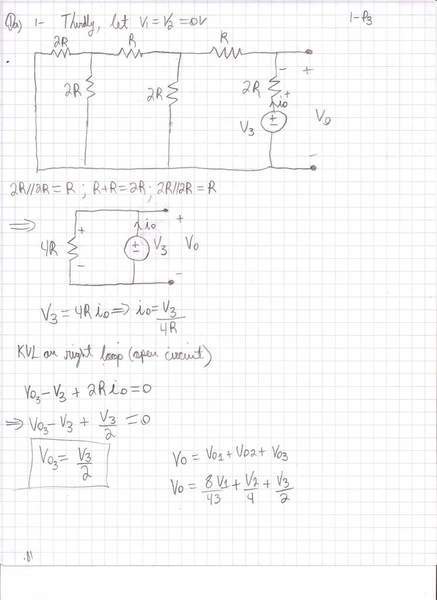 1- Thirdly, let V1 = V2 = 0V
1-P3
2R R R
2R 2R 2R io + - + V3 Vo -
2R//2R = R ; R+R = 2R ; 2R//2R = R
⇒ 4R + - io V3 + Vo -
V3 = 4R io ⇒ io = V3/4R
KVL on right loop (open circuit)
Vo3 - V3 + 2R io = 0
⇒ Vo3 - V3 + V3/2 = 0
Vo3 = V3/2
Vo = Vo1 + Vo2 + Vo3
Vo = 8V1/43 + V2/4 + V3/2